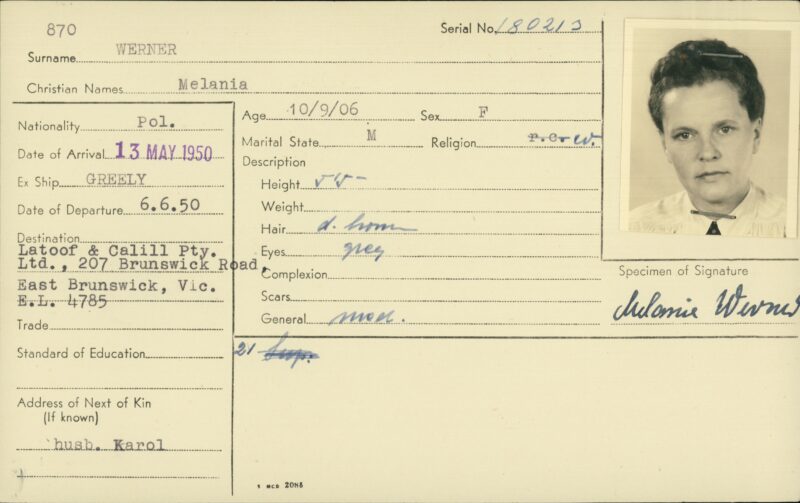 870
Serial No. 180213
Surname WERNER
Christian Names Melania
Nationality Pol.
Date of Arrival 13 MAY 1950
Ex Ship GREELY
Date of Departure 6.6.50
Destination
Latoof & Calill Pty.
Ltd., 207 Brunswick Road,
East Brunswick, Vic.
E.L. 4785
Trade
Standard of Education
Address of Next of Kin
(If known)
husb. Karol
Age 10/9/06 Sex F
Marital State M Religion r.c. W.
Description
Height 5'5"
Weight
Hair d. brown
Eyes grey
Complexion
Scars
General med.
21 Sup.
Specimen of Signature
Melanie Werner